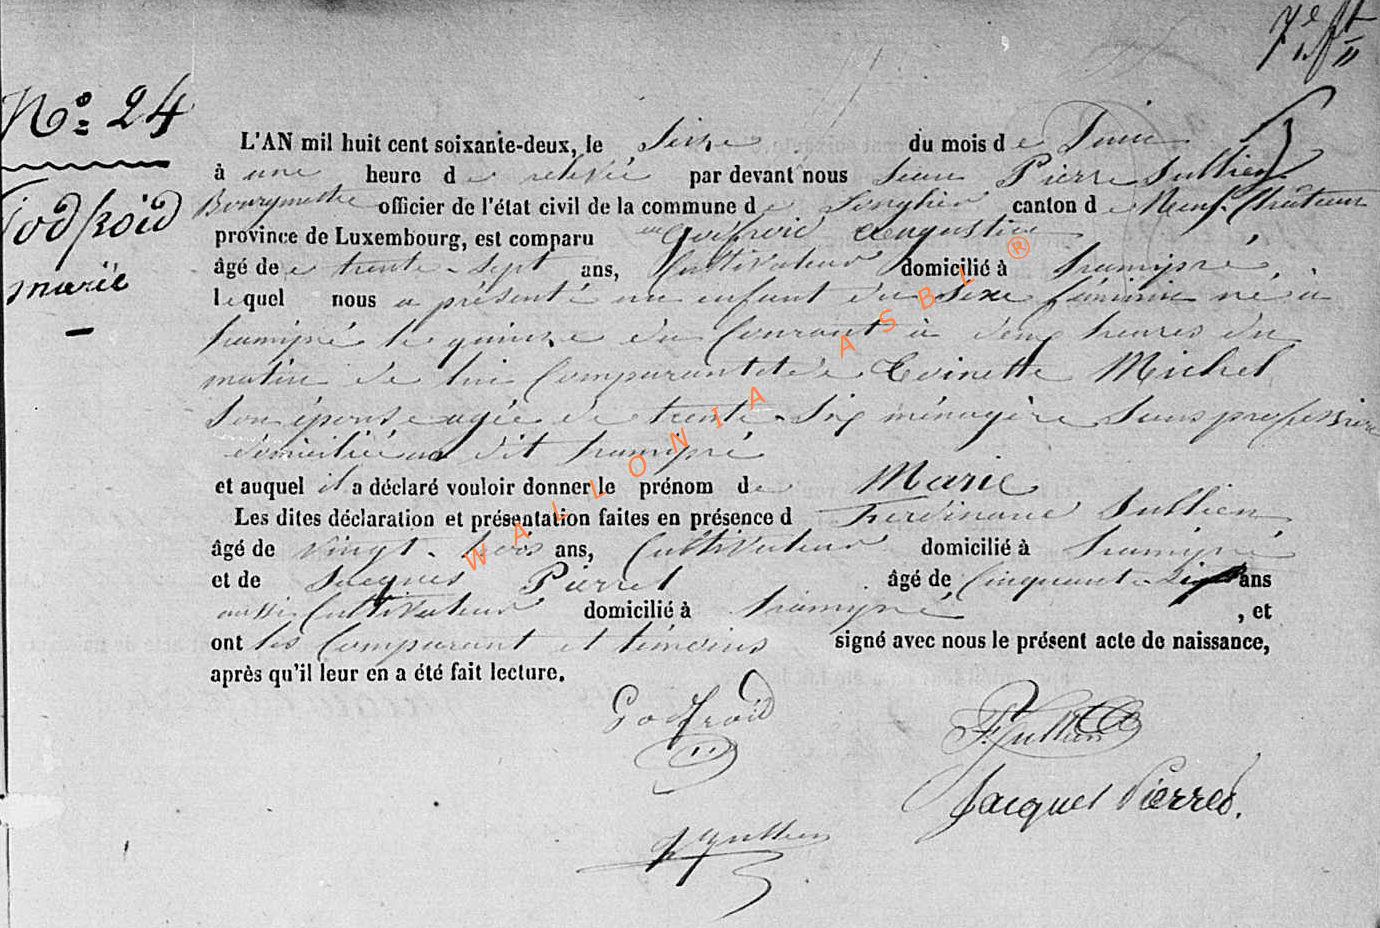 N° 24
Godfroid
marie
L'AN mil huit cent soixante-deux, le Seize du mois de Juin
à une heure de relevée par devant nous Jean Pierre Jullien
Bourgmestre officier de l'état civil de la commune de Longlier canton de Neuf-Château
province de Luxembourg, est comparu Godfroid Augustin
âgé de trente-sept ans, Cultivateur domicilié à
lequel nous a présenté un enfant du Sexe féminin né à
le quinze du Courant à deux heures du
matin de lui Comparant et de Toinette Michel
Son épouse agée de trente-Six ménagère Sans profession
domiciliée au dit
et auquel il a déclaré vouloir donner le prénom de Marie
Les dites déclaration et présentation faites en présence d Ferdinand Jullien
âgé de vingt-trois ans, Cultivateur domicilié à
et de Jacques Pierret âgé de Cinquante- ans
aussi Cultivateur domicilié à , et
ont les Comparant et témoins signé avec nous le présent acte de naissance,
après qu'il leur en a été fait lecture.
Godfroid
F. Jullien
Jacques Pierret.
Jullien
WALLONIA ASBL ®